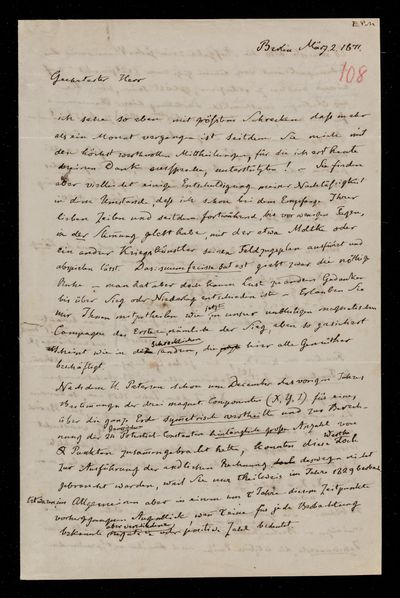 E.P.n
Berlin März 2. 1871.
108
Geehrtester Herr
ich sehe so eben mit größtem Schrecken daß mehr
als ein Monat vergangen ist seitdem Sie mich mit
den höchst werthvollen Mittheilungen, für die ich erst heute
meinen Dank ausspreche, unterstützten! — Sie finden
aber vielleicht einige Entschuldigung meiner Nachlässigkeit
in dem Umstand, daß ich schon bei dem Empfange Ihrer
lieben Zeilen und seitdem fortwährend, bis vor wenigen Tagen,
in der Stimmung gelebt habe, mit der etwa Moltke oder
ein andrer Kriegskünstler seinen Feldzugsplan ausführt und
abspielen lässt. Das: est giebt zwar die nöthige
Ruhe — man hat aber doch kaum Lust zu andern Gedanken
bis über Sieg oder Niederlage entschieden ist — Erlauben Sie
mir Ihnen mitzutheilen wie jetzt in unsrer unblutigen magnetischen
Campagne das Erste nämlich der Sieg, eben so gesichert
scheint wie in der schrecklichen andern, die hier alle Gemüther
beschäftigt.
Nachdem H. Petersen schon im December des vorigen Jahres
Bestimmungen der drei magnet. Componenten (X, Y, Z) für eine,
über die ganze Erde symetrisch vertheilte und zur Berech-
nung der 24 Potential-Constanten Anzahl von
Q Punkten zusammengebracht hatte, konnten diese Werthe
zur Ausführung der endlichen Rechnung deswegen nicht
gebraucht werden, weil Sie nur theilweis im Jahre 1829
im Allgemeinen aber in einem um τ Jahre diesem Zeitpunkte
vorhergegangenen Augenblick wo τ eine für jede Beobachtung
bekannte aber verschiedene negative oder positive Zahl bedeutet.